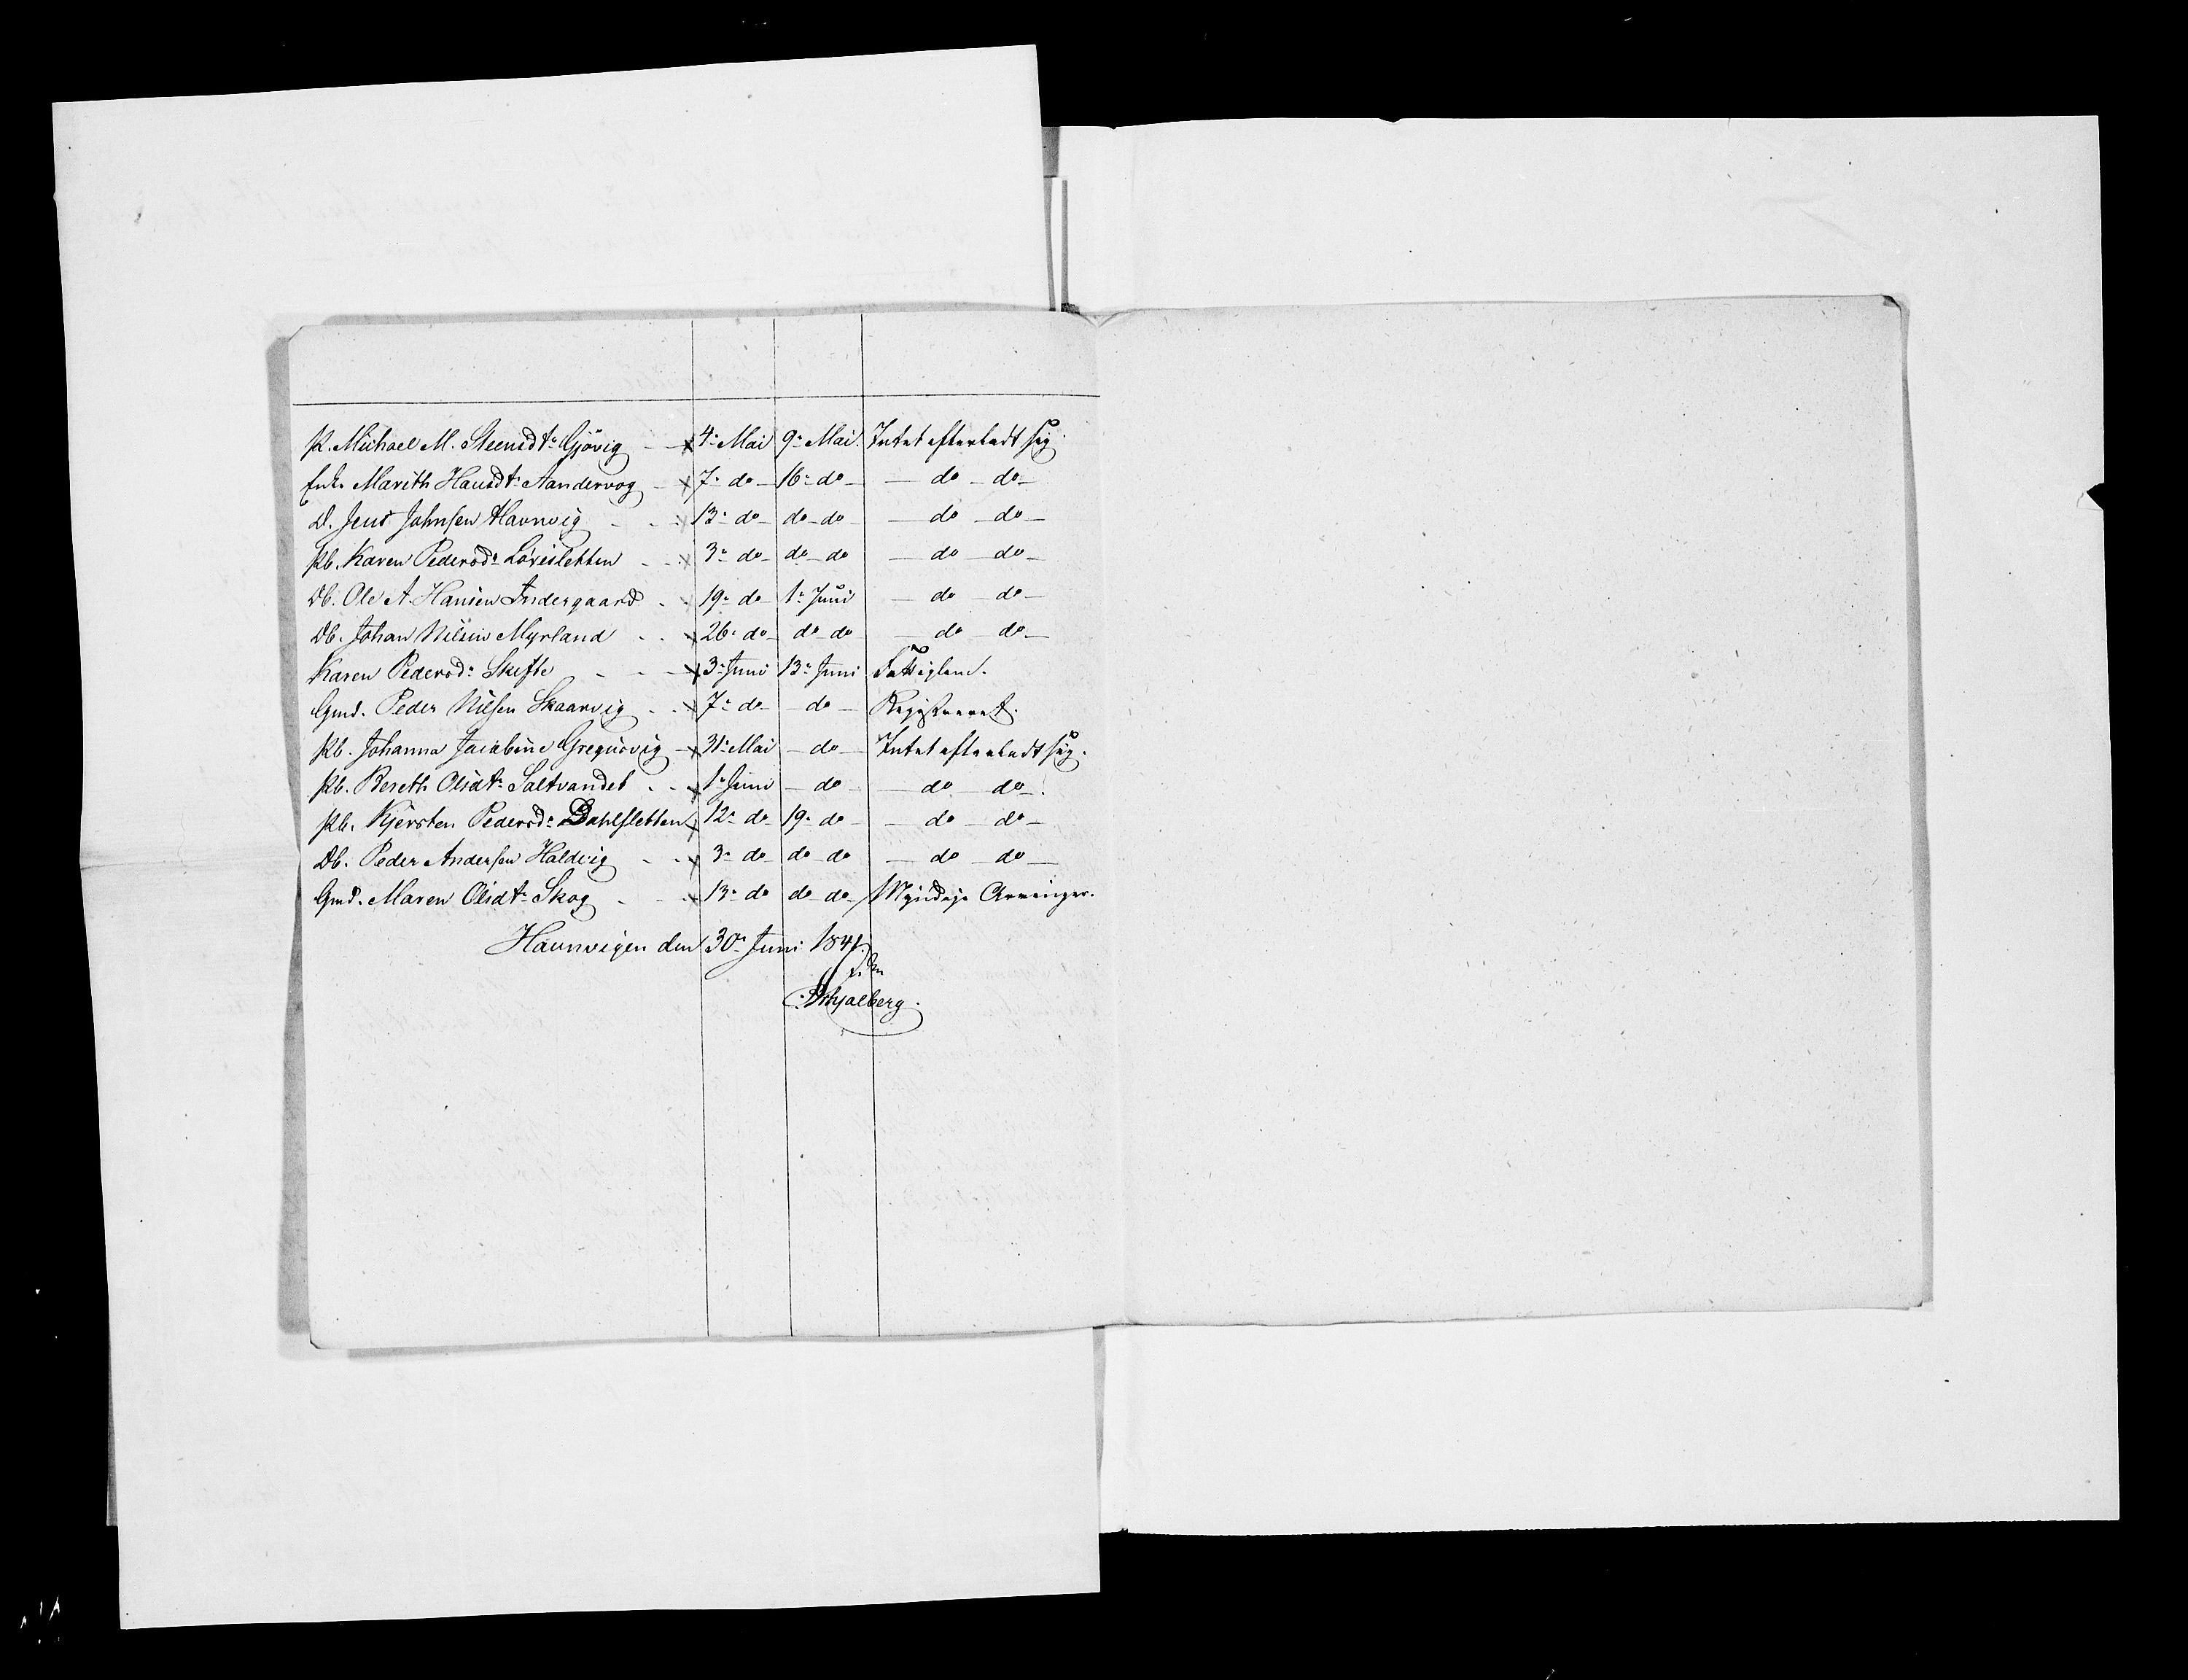 K. Michael M. Steensdtr Gjövig - x 4de Mai 9de Mai. Intet efterladt sig.
Enke Marith Hansdtr Aandervog - x 7de do - 16de do - - do - do -
D. Jens Johnsen Havnvig - - x 13de do - do - do - - do - do -
Pb. Karen Pedersdr Lövisletten - - x 3de do - do - do - do - do -
Db. Ole A. Hansen Indergaard - - 19de do - 1de Juni - do - do -
Db. Johan Nilsen Myrland - - x 26de do - do - do - do - do -
Karen Pedersdr Skifte - - - x 3de Juni 13de Juni Fattiglem.
Gmd. Peder Nilsen Skaarvig - - x 7de do - - do - Registreret.
Pb. Johanna Jacobine Gregusvig - x 31de Mai - do - Intet efterladt sig.
Pb. Bereth Olsdtr Saltvandet - - x 1de Juni - do - - do - do -
Pb. Kjersten Pedersdr Dahlsletten x 12de do - 19de do - - do - do -
Db. Peder Andersen Haldvig - - x 3de do - do - do - do - do -
Gmd. Maren Olsdtr Skog - - x 13de do do - do - Myndige Arvinger.
Havnvigen den 30de Juni 1841.
Schjelberg.